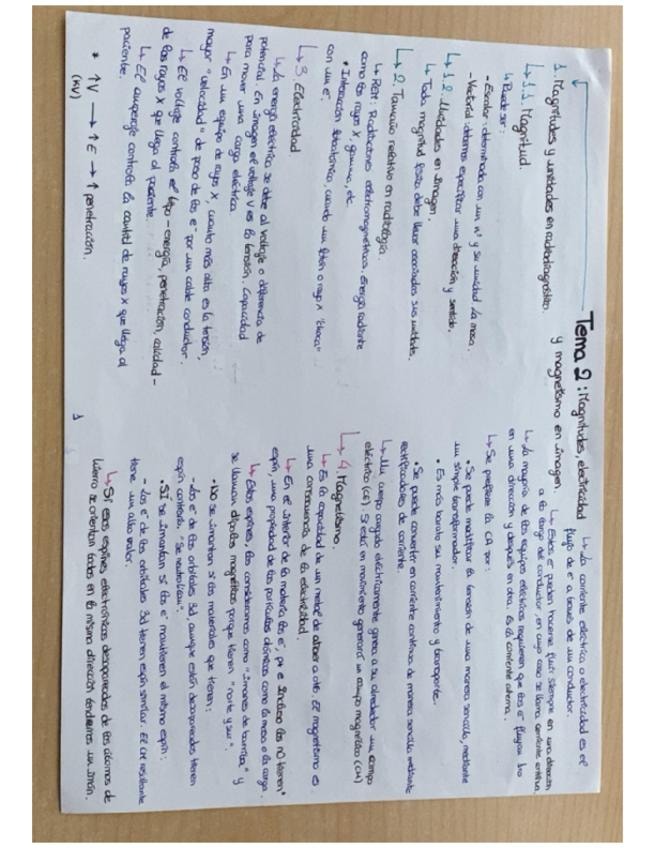 Tema 2: Magnitudes, electricidad
y magnetismo en imagen.
1. Magnitudes y unidades en radiodiagnóstico.
↳ 1.1. Magnitud.
↳ Puede ser:
- Escalar: determinada con un nº y su unidad. La masa.
- Vectorial: debemos especificar una dirección y sentido.
↳ 1.2. Unidades en imagen.
↳ Toda magnitud física debe llevar asociadas sus unidades.
↳ 2. Tamaño relativo en radiología.
↳ REM: Radiaciones electromagnéticas. Energía radiante
como los rayos X, gamma, etc.
• Interacción fotoatómica, cuando un fotón o rayo X "choca"
con un e⁻.
↳ 3. Electricidad.
↳ La energía eléctrica se debe al voltaje o diferencia de
potencial. En imagen el voltaje V es la tensión. Capacidad
para mover una carga eléctrica
↳ En un equipo de rayos X, cuanto más alta es la tensión,
mayor "velocidad" de paso de los e⁻ por un cable conductor.
↳ El voltaje controla el tipo - energía, penetración, calidad -
de los rayos X que llega al paciente.
↳ El amperaje controla la cantidad de rayos X que llega al
paciente.
* ↑V → ↑E → ↑ penetración.
(KV)
1
↳ La corriente eléctrica o electricidad es el
flujo de e⁻ a través de un conductor.
↳ Estos e⁻ pueden hacerse fluir siempre en una dirección
a lo largo del conductor, en cuyo caso se llama corriente continua.
↳ La mayoría de los equipos eléctricos requieren que los e⁻ fluyan
en una dirección y después en otra. Es la corriente alterna.
↳ Se prefiere la CA por:
• Se puede modificar la tensión de una manera sencilla, mediante
un simple transformador.
• Es más barato su mantenimiento y transporte.
• Se puede convertir en corriente continua de manera sencilla mediante
rectificadores de corriente.
↳ Un cuerpo cargado eléctricamente genera a su alrededor un campo
eléctrico (CE). Si está en movimiento generará un campo magnético (CM)
↳ 4. Magnetismo.
↳ Es la capacidad de un metal de atraer a otro. El magnetismo es
una consecuencia de la electricidad.
↳ En el interior de la materia los e⁻, p+ e incluso los n0 tienen
espín, una propiedad de las partículas atómicas como la masa o la carga.
↳ Estos espines, los consideramos como "imanes de barrita" y
se llaman dipolos magnéticos porque tienen "norte y sur".
• No se imantan si los materiales que tienen:
- Los e⁻ de los orbitales 3d, aunque estén desapareados tienen
espín contrario. "Se neutralizan".
• SÍ se imantan si los e⁻ mantienen el mismo espín:
- Los e⁻ de los orbitales 3d tienen espín similar. El CM resultante
tiene un alto valor.
↳ Si esos espines electrónicos desapareados de los átomos de
hierro se orientan todos en la misma dirección tendremos un imán.